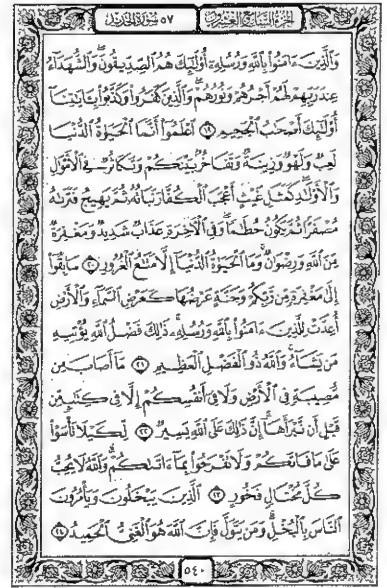 الجزء السابع والعشرون
٥٧ سورة الحديد
وَٱلَّذِينَ ءَامَنُوا۟ بِٱللَّهِ وَرُسُلِهِۦٓ أُو۟لَٰٓئِكَ هُمُ ٱلصِّدِّيقُونَ ۖ وَٱلشُّهَدَآءُ
عِندَ رَبِّهِمْ لَهُمْ أَجْرُهُمْ وَنُورُهُمْ ۖ وَٱلَّذِينَ كَفَرُوا۟ وَكَذَّبُوا۟ بِـَٔايَٰتِنَآ
أُو۟لَٰٓئِكَ أَصْحَٰبُ ٱلْجَحِيمِ ١٩ ٱعْلَمُوٓا۟ أَنَّمَا ٱلْحَيَوٰةُ ٱلدُّنْيَا
لَعِبٌ وَلَهْوٌ وَزِينَةٌ وَتَفَاخُرٌۢ بَيْنَكُمْ وَتَكَاثُرٌ فِى ٱلْأَمْوَٰلِ
وَٱلْأَوْلَٰدِ ۖ كَمَثَلِ غَيْثٍ أَعْجَبَ ٱلْكُفَّارَ نَبَاتُهُۥ ثُمَّ يَهِيجُ فَتَرَىٰهُ
مُصْفَرًّا ثُمَّ يَكُونُ حُطَٰمًا ۖ وَفِى ٱلْـَٔاخِرَةِ عَذَابٌ شَدِيدٌ وَمَغْفِرَةٌ
مِّنَ ٱللَّهِ وَرِضْوَٰنٌ ۚ وَمَا ٱلْحَيَوٰةُ ٱلدُّنْيَآ إِلَّا مَتَٰعُ ٱلْغُرُورِ ٢٠ سَابِقُوٓا۟
إِلَىٰ مَغْفِرَةٍ مِّن رَّبِّكُمْ وَجَنَّةٍ عَرْضُهَا كَعَرْضِ ٱلسَّمَآءِ وَٱلْأَرْضِ
أُعِدَّتْ لِلَّذِينَ ءَامَنُوا۟ بِٱللَّهِ وَرُسُلِهِۦ ۚ ذَٰلِكَ فَضْلُ ٱللَّهِ يُؤْتِيهِ
مَن يَشَآءُ ۚ وَٱللَّهُ ذُو ٱلْفَضْلِ ٱلْعَظِيمِ ٢١ مَآ أَصَابَ مِن
مُّصِيبَةٍ فِى ٱلْأَرْضِ وَلَا فِىٓ أَنفُسِكُمْ إِلَّا فِى كِتَٰبٍ مِّن
قَبْلِ أَن نَّبْرَأَهَآ ۚ إِنَّ ذَٰلِكَ عَلَى ٱللَّهِ يَسِيرٌ ٢٢ لِّكَيْلَا تَأْسَوْا۟
عَلَىٰ مَا فَاتَكُمْ وَلَا تَفْرَحُوا۟ بِمَآ ءَاتَىٰكُمْ ۗ وَٱللَّهُ لَا يُحِبُّ
كُلَّ مُخْتَالٍ فَخُورٍ ٢٣ ٱلَّذِينَ يَبْخَلُونَ وَيَأْمُرُونَ
ٱلنَّاسَ بِٱلْبُخْلِ ۗ وَمَن يَتَوَلَّ فَإِنَّ ٱللَّهَ هُوَ ٱلْغَنِىُّ ٱلْحَمِيدُ ٢٤
٥٤٠